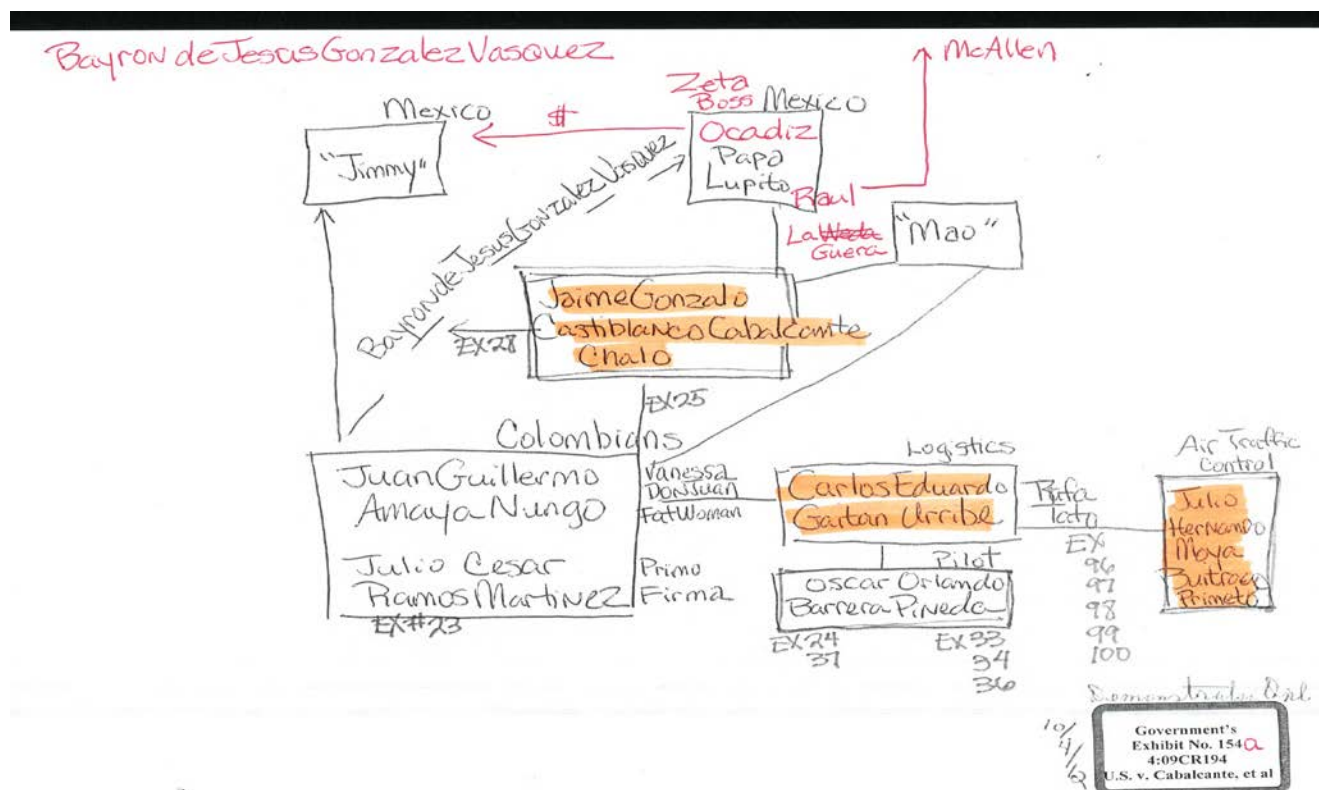 Bayron de Jesus Gonzalez Vasquez
McAllen
Zeta
Boss
Mexico
Mexico
#
"Jimmy"
Ocadiz
Papa
Lupito
Raul
La Weda
Guera
"Mao"
Bayron de Jesus Gonzalez Vasquez
Jaime Gonzalo
Castiblanco Cabalcante
Chalo
EX 28
EX 25
Colombians
Juan Guillermo
Amaya Nungo
Julio Cesar
Ramos Martinez
EX #23
Vanessa
Don Juan
Fat Woman
Primo
Firma
Logistics
Carlos Eduardo
Gaitan Urribe
Pilot
Oscar Orlando
Barrera Pineda
EX 24
37
EX 33
34
36
Rafa
Tato
EX
96
97
98
99
100
Air Traffic
Control
Julio
Hernando
Moya
Buitrago
Primeto
Demonstrative Only
10/
4/
Government's
Exhibit No. 154a
4:09CR194
U.S. v. Cabalcante, et al